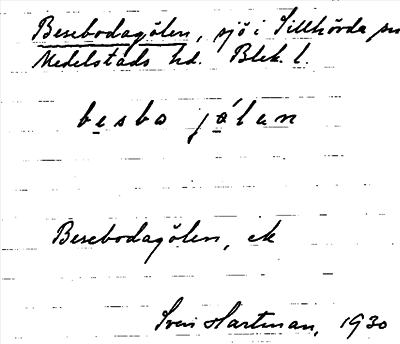 Besebodagölen, sjö i Tillhövda sn
Medelstads hd. Blek. l.
besbo jålan
Besebodagölen, ek
Sven Hartman, 1930